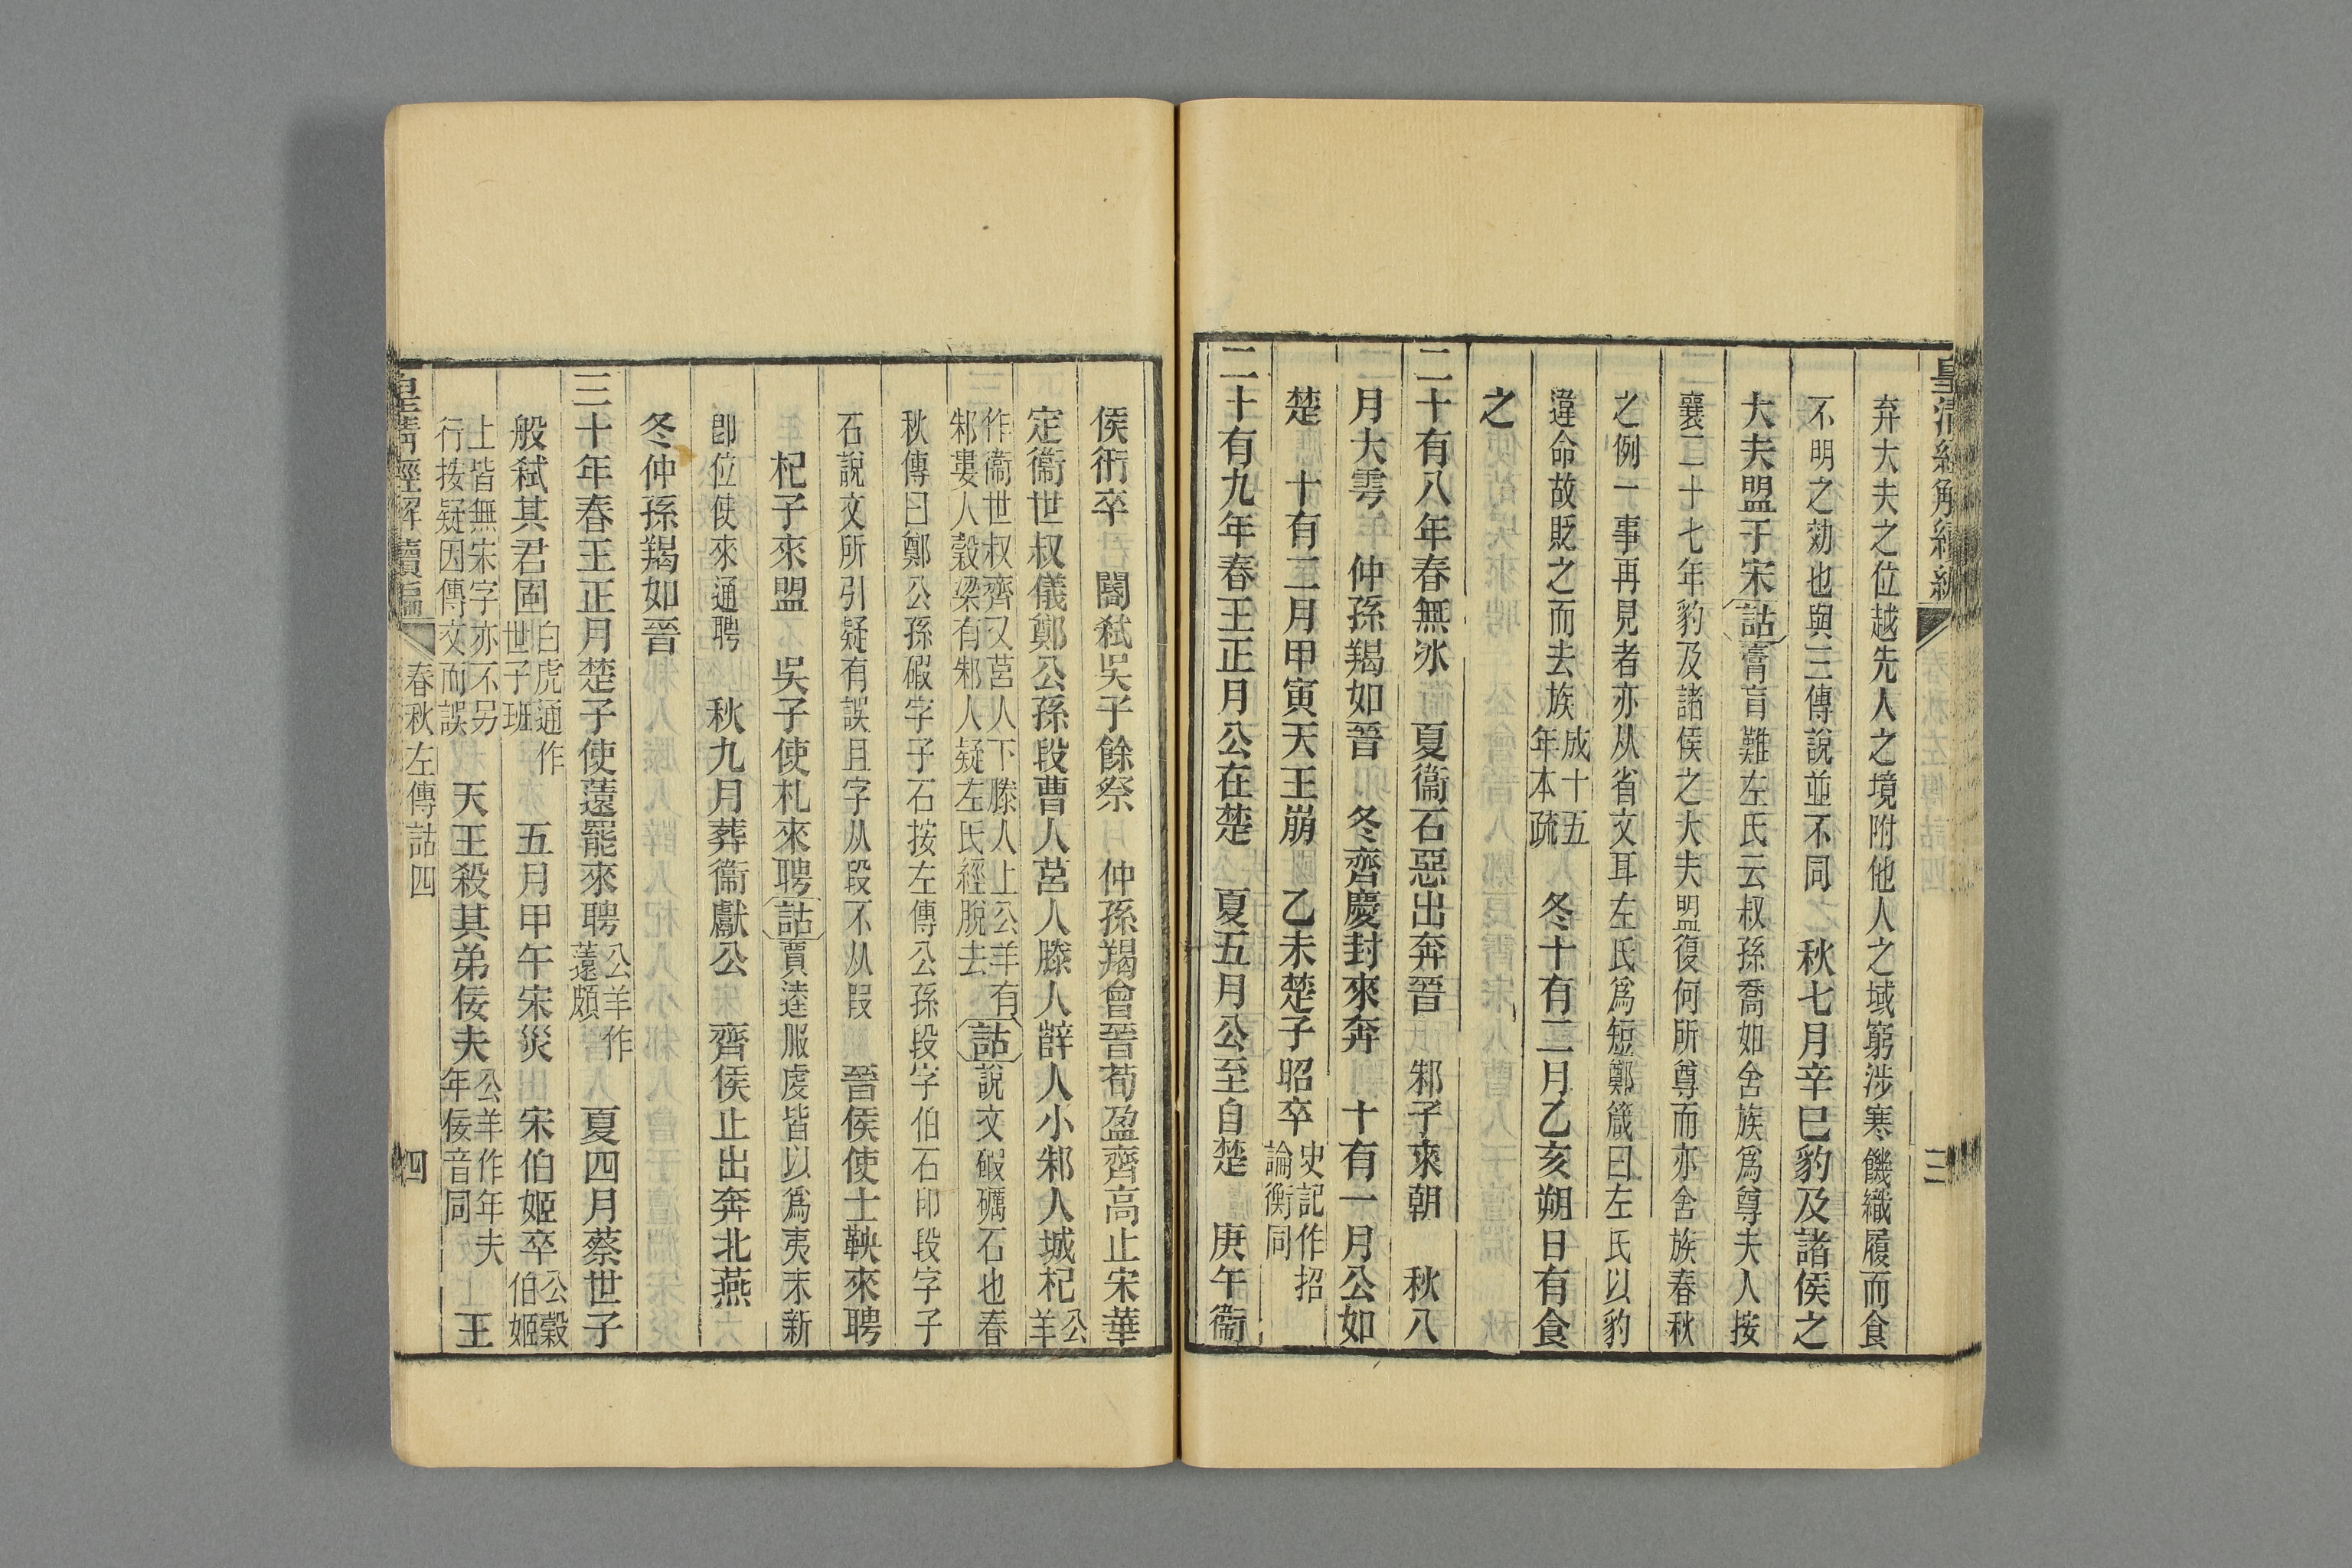 皇清經解續編
三
弃大夫之位越先人之境附他人之域窮涉寒饑織履而食
不明之効也與三傳說並不同　秋七月辛巳豹及諸侯之
大夫盟于宋詁膏肓難左氏云叔孫喬如舍族爲尊夫人按
襄二十七年豹及諸侯之大夫盟復何所尊而亦舍族春秋
之例一事再見者亦从省文耳左氏爲短鄭箴曰左氏以豹
違命故貶之而去族成十五年本疏　冬十有二月乙亥朔日有食
之
二十有八年春無冰　夏衞石惡出奔晉　邾子來朝　秋八
月大雩　仲孫羯如晉　冬齊慶封來奔　十有一月公如
楚　十有二月甲寅天王崩　乙未楚子昭卒史記作招論衡同
二十有九年春王正月公在楚　夏五月公至自楚　庚午衞
侯衎卒　閽弒吳子餘祭　仲孫羯會晉荀盈齊高止宋華
定衞世叔儀鄭公孫段曹人莒人滕人薛人小邾人城杞公羊
作衞世叔齊又莒人下滕人上公羊有邾婁人穀梁有邾人疑左氏經脫去詁說文碬礪石也春
秋傳曰鄭公孫碬字子石按左傳公孫段字伯石印段字子
石說文所引疑有誤且字从段不从叚　晉侯使士鞅來聘
杞子來盟　吳子使札來聘詁賈逵服虔皆以爲夷末新
卽位使來通聘　秋九月葬衞獻公　齊侯止出奔北燕
冬仲孫羯如晉
三十年春王正月楚子使薳罷來聘公羊作薳頗　夏四月蔡世子
般弒其君固白虎通作世子班　五月甲午宋災　宋伯姬卒公穀伯姬
上皆無宋字亦不另行按疑因傳文而誤　天王殺其弟佞夫公羊作年夫年佞音同　王
皇清經解續編
春秋左傳詁四
四